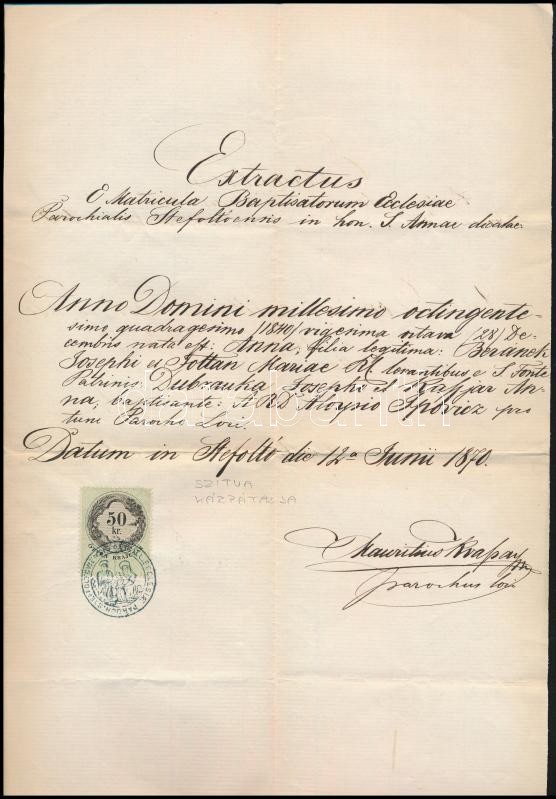 Extractus
E Matricula Baptisatorum Ecclesiae
Parochialis Stefoltoensis in hon. S. Annae dicatae.
Anno Domini millesimo octingente-
simo quadragesimo /1840/ vigesima octava /28/ De-
cembris nata est: Anna, filia legitima: Beranek
Josephi et Jottan Mariae RC. levantibus e S. Fonte
Patrinis Dubravka Josepho et Kaspar An-
na, baptisante: A RD Aloysio pro
tunc Parocho Loci.
Datum in Stefoltó die 12a Junii 1870.
SZITVA
KÁRPÁTALJA
50
kr.
Mauritius
parochus loci